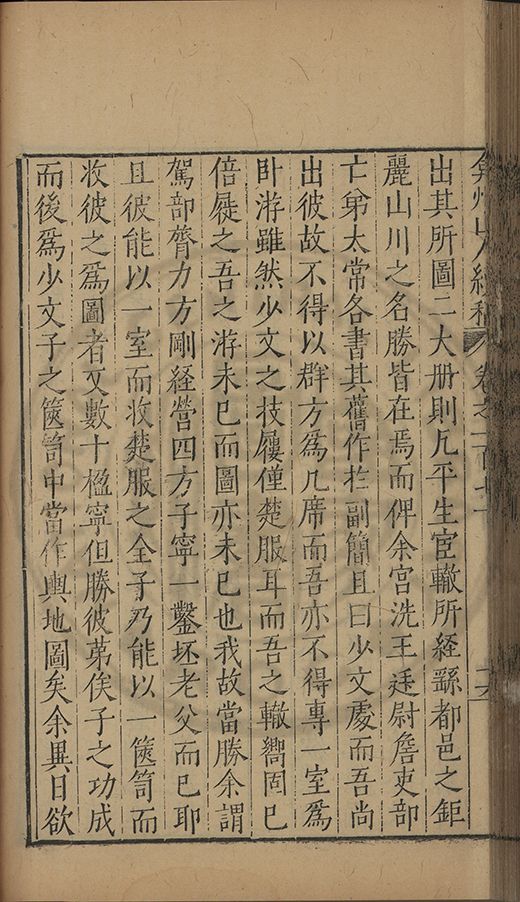 弇州山人續稿 卷之一百七十 十六
出其所圖二大冊則凡平生宦轍所經繇都邑之鉅
麗山川之名勝皆在焉而俾余宫洗王廷尉詹吏部
亡弟太常各書其舊作於副簡且曰少文處而吾尚
出彼故不得以群方為几席而吾亦不得專一室為
卧游雖然少文之技屨僅楚服耳而吾之轍嚮固已
倍蓰之吾之游未已而圖亦未已也我故當勝余謂
駕部膂力方剛経營四方子寧一鑿坏老父而已耶
且彼能以一室而收楚服之全子乃能以一篋笥而
收彼之為圖者又數十楹寧但勝彼苐俟子之功成
而後為少文子之篋笥中當作輿地圖矣余異日欲